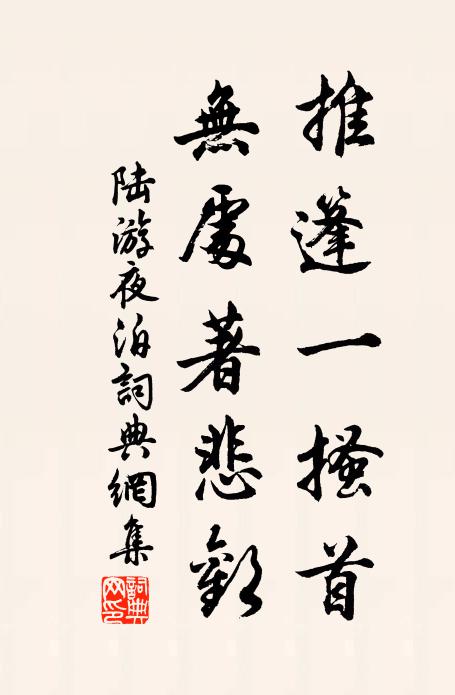 推篷一搔首
無處著悲歡
陸游夜泊詞典網集
詞典網印